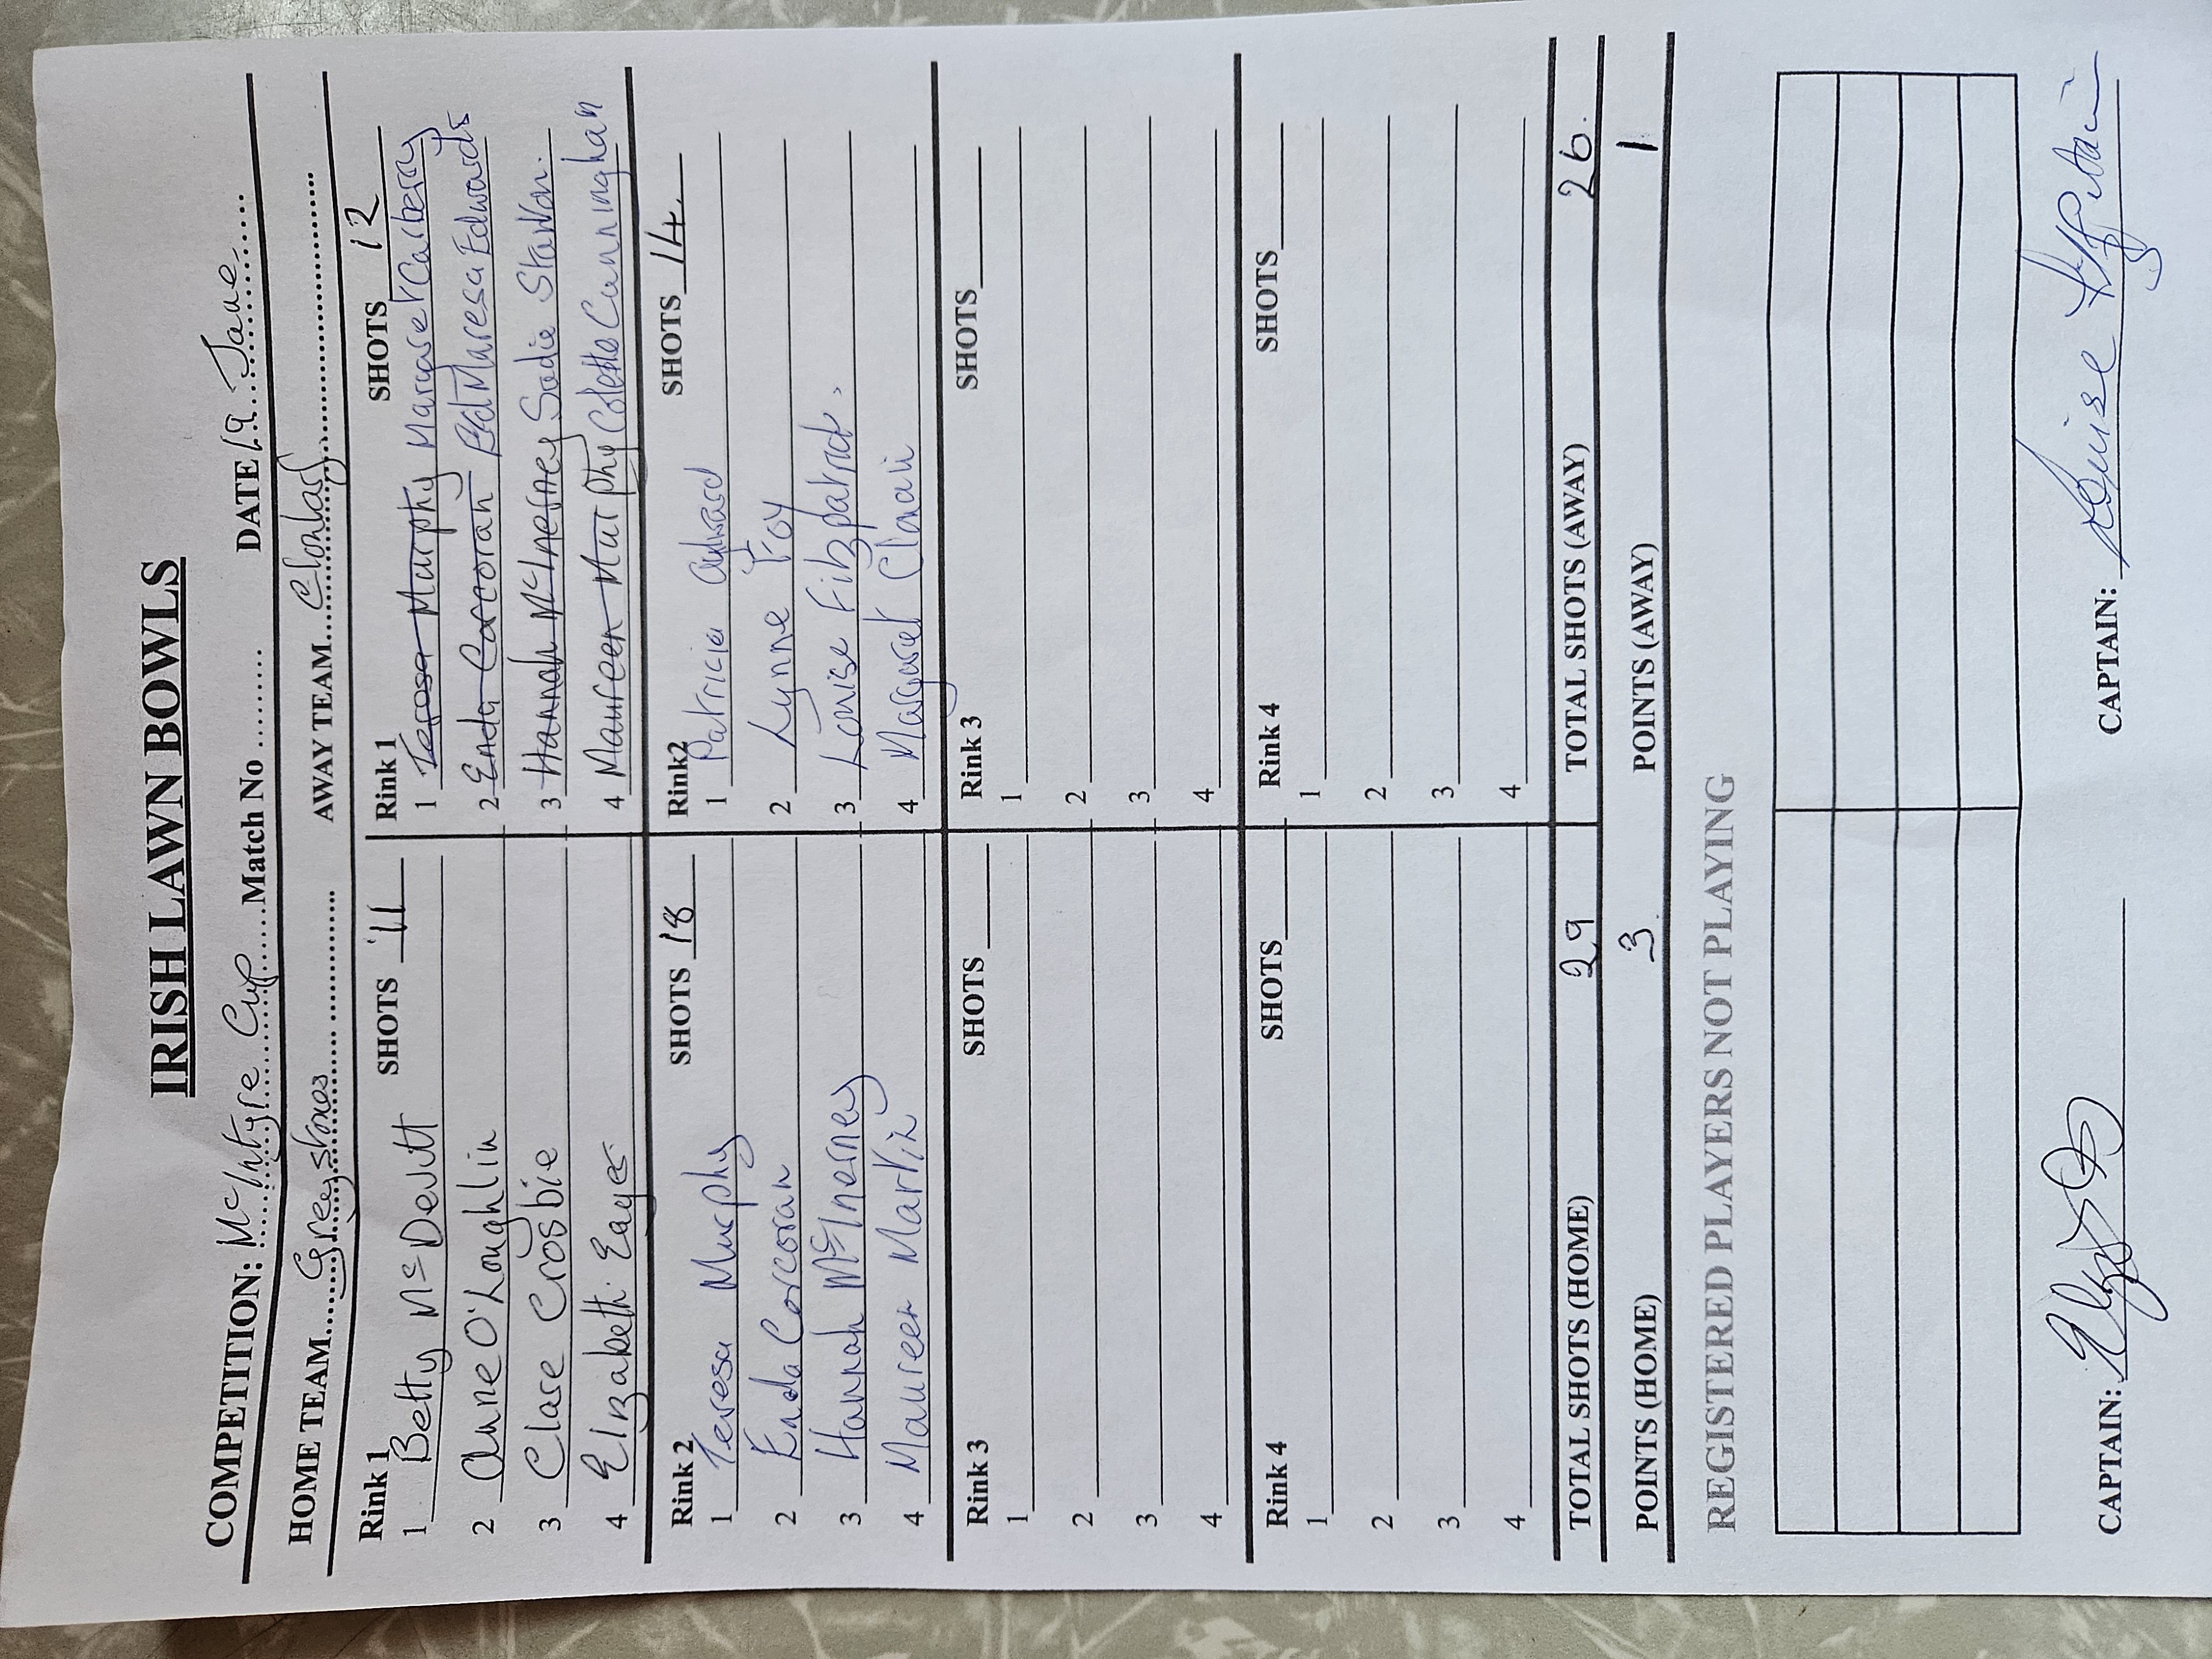 IRISH LAWN BOWLS
COMPETITION: McIntyre Cup Match No ........ DATE 19 June
HOME TEAM Greystones AWAY TEAM Clontarf
Rink 1 SHOTS 11
1 Betty McDevitt
2 Anne O'Loughlin
3 Clare Crosbie
4 Elizabeth Eager
Rink 1 SHOTS 12
1 Teresa Murphy Margaret Carberry
2 Enda Corcoran Pat Maresa Edwards
3 Hannah McInerney Sadie Stanton.
4 Maureen Murphy Colette Cunningham
Rink 2 SHOTS 18
1 Teresa Murphy
2 Enda Corcoran
3 Hannah McInerney
4 Maureen Martin
Rink2 SHOTS 14.
1 Patricia
2 Lynne Foy
3 Louise Fitzpatrick.
4 Margaret
Rink 3 SHOTS
1
2
3
4
Rink 3 SHOTS
1
2
3
4
Rink 4 SHOTS
1
2
3
4
Rink 4 SHOTS
1
2
3
4
TOTAL SHOTS (HOME) 29 TOTAL SHOTS (AWAY) 26.
POINTS (HOME) 3 POINTS (AWAY) 1
REGISTERED PLAYERS NOT PLAYING
CAPTAIN: CAPTAIN: Louise Fitzpatrick